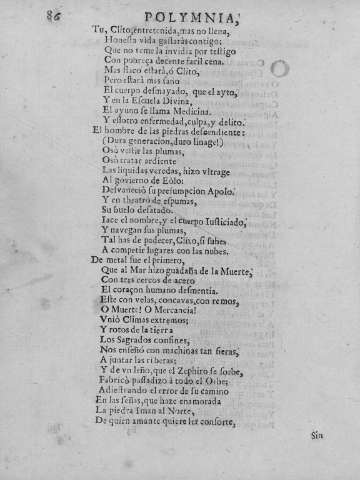 86
POLYMNIA,
Tu, Clito, entretenida, mas no llena,
Honesta vida gastaràs contigo;
Que no teme la invidia por testigo
Con pobreça decente facil cena.
Mas flaco estarà, ó Clito,
Pero estarà mas sano
El cuerpo desmayado, que el ayto,
Y en la Escuela Divina,
El ayuno se llama Medicina.
Y essotro enfermedad, culpa, y delito.
El hombre de las piedras descendiente:
(Dura generacion, duro linage!)
Osò vestir las plumas,
Osò tratar ardiente
Las liquidas veredas, hizo vltrage
Al govierno de Eôlo:
Desvaneciò su presumpcion Apolo.
Y en theatro de espumas,
Su buelo desatado.
Iace el nombre, y el cuerpo Iusticiado,
Y navegan sus plumas,
Tal has de padecer, Clito, si subes
A competir lugares con las nubes.
De metal fue el primero,
Que al Mar hizo guadaña de la Muerte,
Con tres cercos de acero
El coraçon humano desmentia.
Este con velas, concavas, con remos,
O Muerte! O Mercancia!
Vniò Climas extremos;
Y rotos de la tierra
Los Sagrados confines,
Nos enseñó con machinas tan fieras,
A juntar las riberas;
Y de vn leño, que el Zephiro se sorbe,
Fabricò passadizo à todo el Orbe;
Adiestrando el error de su camino
En las señas, que haze enamorada
La piedra Iman al Norte,
De quien amante quiere ser consorte,
Sin